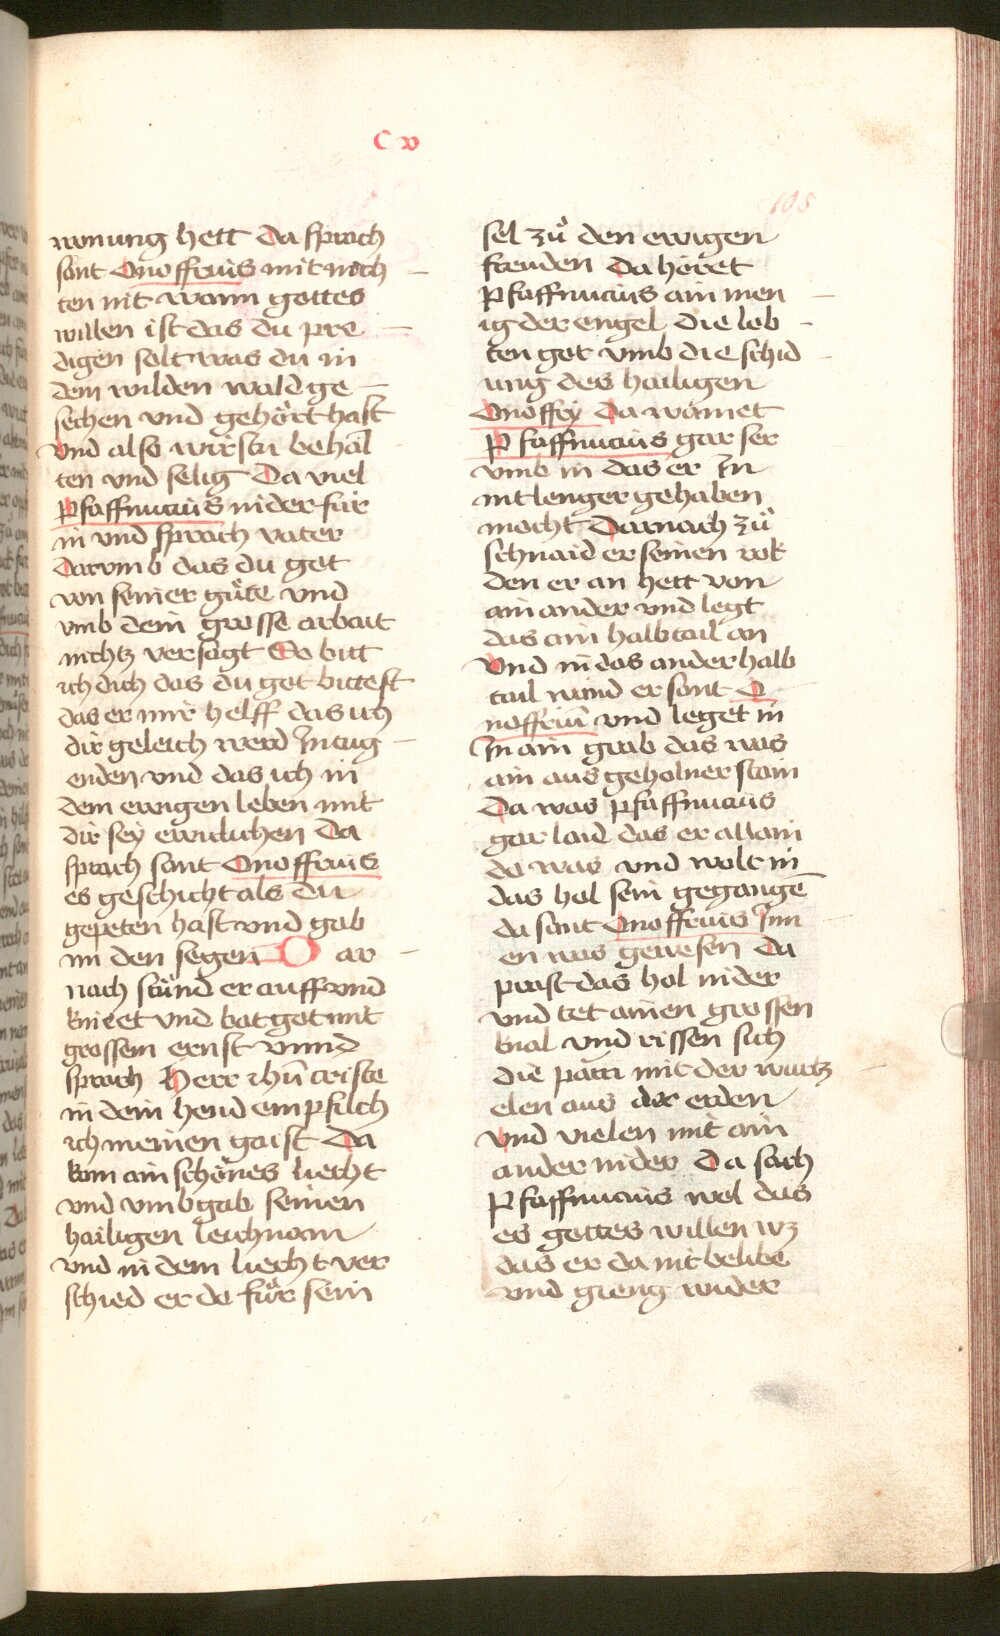 C v
105
wonung hett Da sprach
sant Onoffrius mit nich
ten nit wann gottes
willen ist das du pre
digen solt was du in
dem wilden wald ge
sechen vnd gehört hast
Vnd also wirstu behal
ten vnd selig Da viel
Pfaffnucius nider für
in vnd sprach vater
Darvmb das du got
von seiner güte vnd
vmb dein grosse arbait
nichtz versagt So bitt
ich dich das du got bittest
das er mir helff das ich
dir geleich werd In tug
enden vnd das ich in
dem ewigen leben mit
dir sey ewiclichen Da
sprach sant Onoffrius
es geschicht als du
gepeten hast vnd gab
im den segen D ar
nach stünd er auff vnd
kniett vnd bat got mit
grossem ernst vnnd
sprach Herr ihū criste
in dein hend empfilch
ich meinen gaist Da
kom ain schönes liecht
vnd vmbgab seinen
hailigen leichnam
vnd in dem liecht ver
schied er do für sein
sel zů den ewigen
freuden Da höret
Pfaffnucius ain men
ig der engel Die lob
ten got vmb die schid
ung des hailigen
Onoffry Da wainet
Pfaffnucius gar ser
vmb in das er In
nit lenger gehaben
mocht Darnach zů
schnaid er seinen rok
den er an hett von
ain ander vnd legt
das ain halb tail an
Vnd in das ander halb
tail wind er sant O
noffriū vnd leget in
In ain grab das was
ain aus geholner stain
Da was pfaffnucius
gar laid das er allain
do was vnd wolt in
das hol sein gegangē
da sant Onoffrius Inn
en was gewesen Da
prast das hol nider
vnd tet ainen grossen
knal vnd rissen sich
die pam mit der wurtz
elen aus der erden
Vnd vielen mit ain
ander nider Da sach
Pfaffnucius wol das
es gottes willen wz
das er da nit belibe
vnd gieng wider